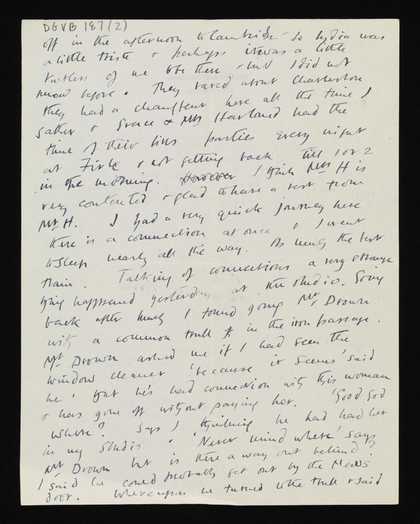 DGVB 187 (2)
off in the afternoon to Cambridge so Lydia was
a little triste & perhaps it was a little
tactless of me to be there - but I did not
know before. They raved about Charleston
they had a chauffeur here all the time I
gather & Grace & Mrs Harland had the
time of their lives parties every night
at Firle & not getting back till 1 or 2
in the morning. However I think Mrs H is
very contented & glad to have a rest from
Mr. H. I had a very quick journey here
there is a connection at once & I went
to sleep nearly all the way. Its nearly the best
train. Talking of connections a very strange
thing happened yesterday at the studio. Going
back after lunch I found young Mr Drown
with a common trull in the iron passage.
Mr Drown asked me if I had seen the
window cleaner 'because it seems' said
he 'that he's had connexion with this woman
& has gone off without paying her. 'Good God
where?' Says I thinking he had had her
in my studio. 'Never mind where' says
Mr Drown but is there a way out behind'.
I said he could probably get out by the Mews
door. Whereupon he turned to the trull & said